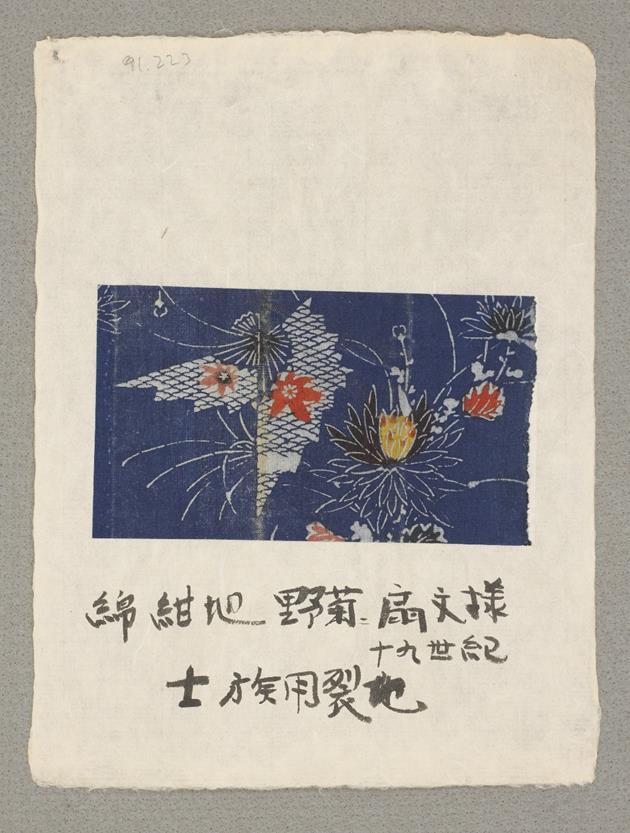 91.223
綿紺地 野菊ニ扇文様
十九世紀
士族用裂地